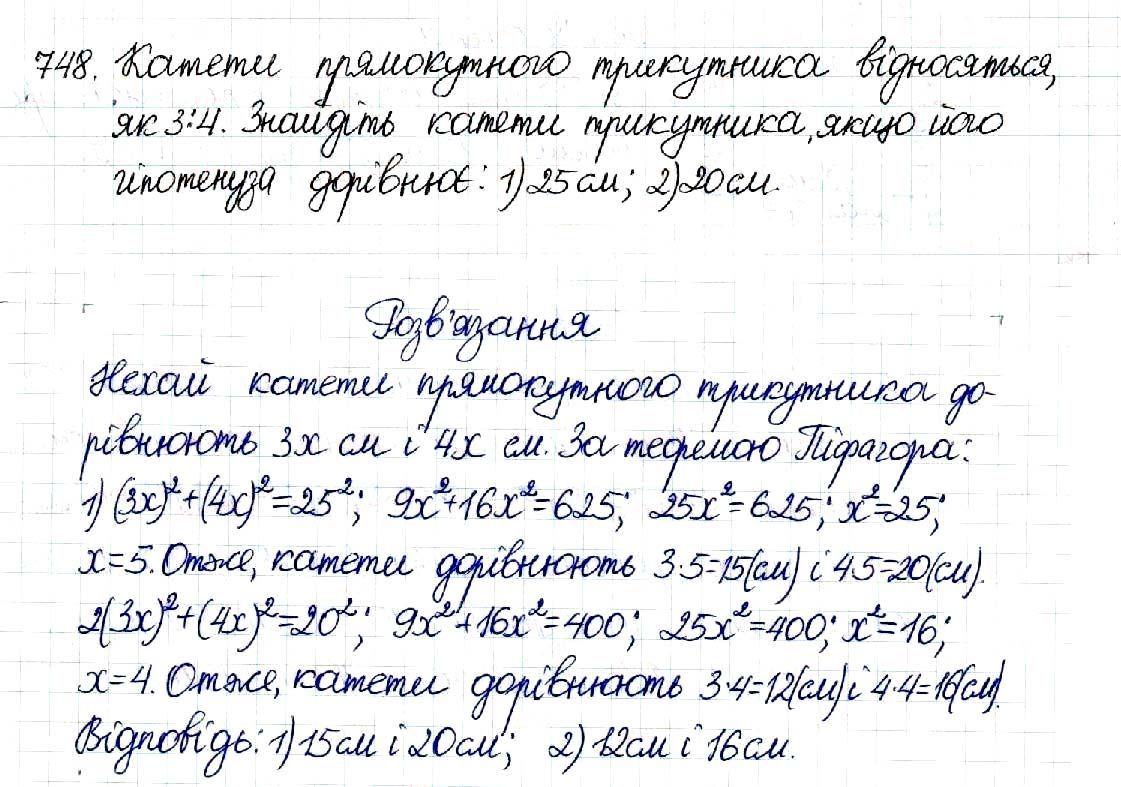 748. Катети прямокутного трикутника відносяться,
як 3:4. Знайдіть катети трикутника, якщо його
гіпотенуза дорівнює: 1) 25 см; 2) 20 см.
Розв'язання
Нехай катети прямокутного трикутника до-
рівнюють 3x см і 4x см. За теоремою Піфагора:
1) (3x)²+(4x)²=25²; 9x²+16x²=625; 25x²=625; x²=25;
x=5. Отже, катети дорівнюють 3·5=15(см) і 4·5=20(см).
2(3x)²+(4x)²=20²; 9x²+16x²=400; 25x²=400; x²=16;
x=4. Отже, катети дорівнюють 3·4=12(см) і 4·4=16(см).
Відповідь: 1) 15 см і 20 см; 2) 12 см і 16 см.